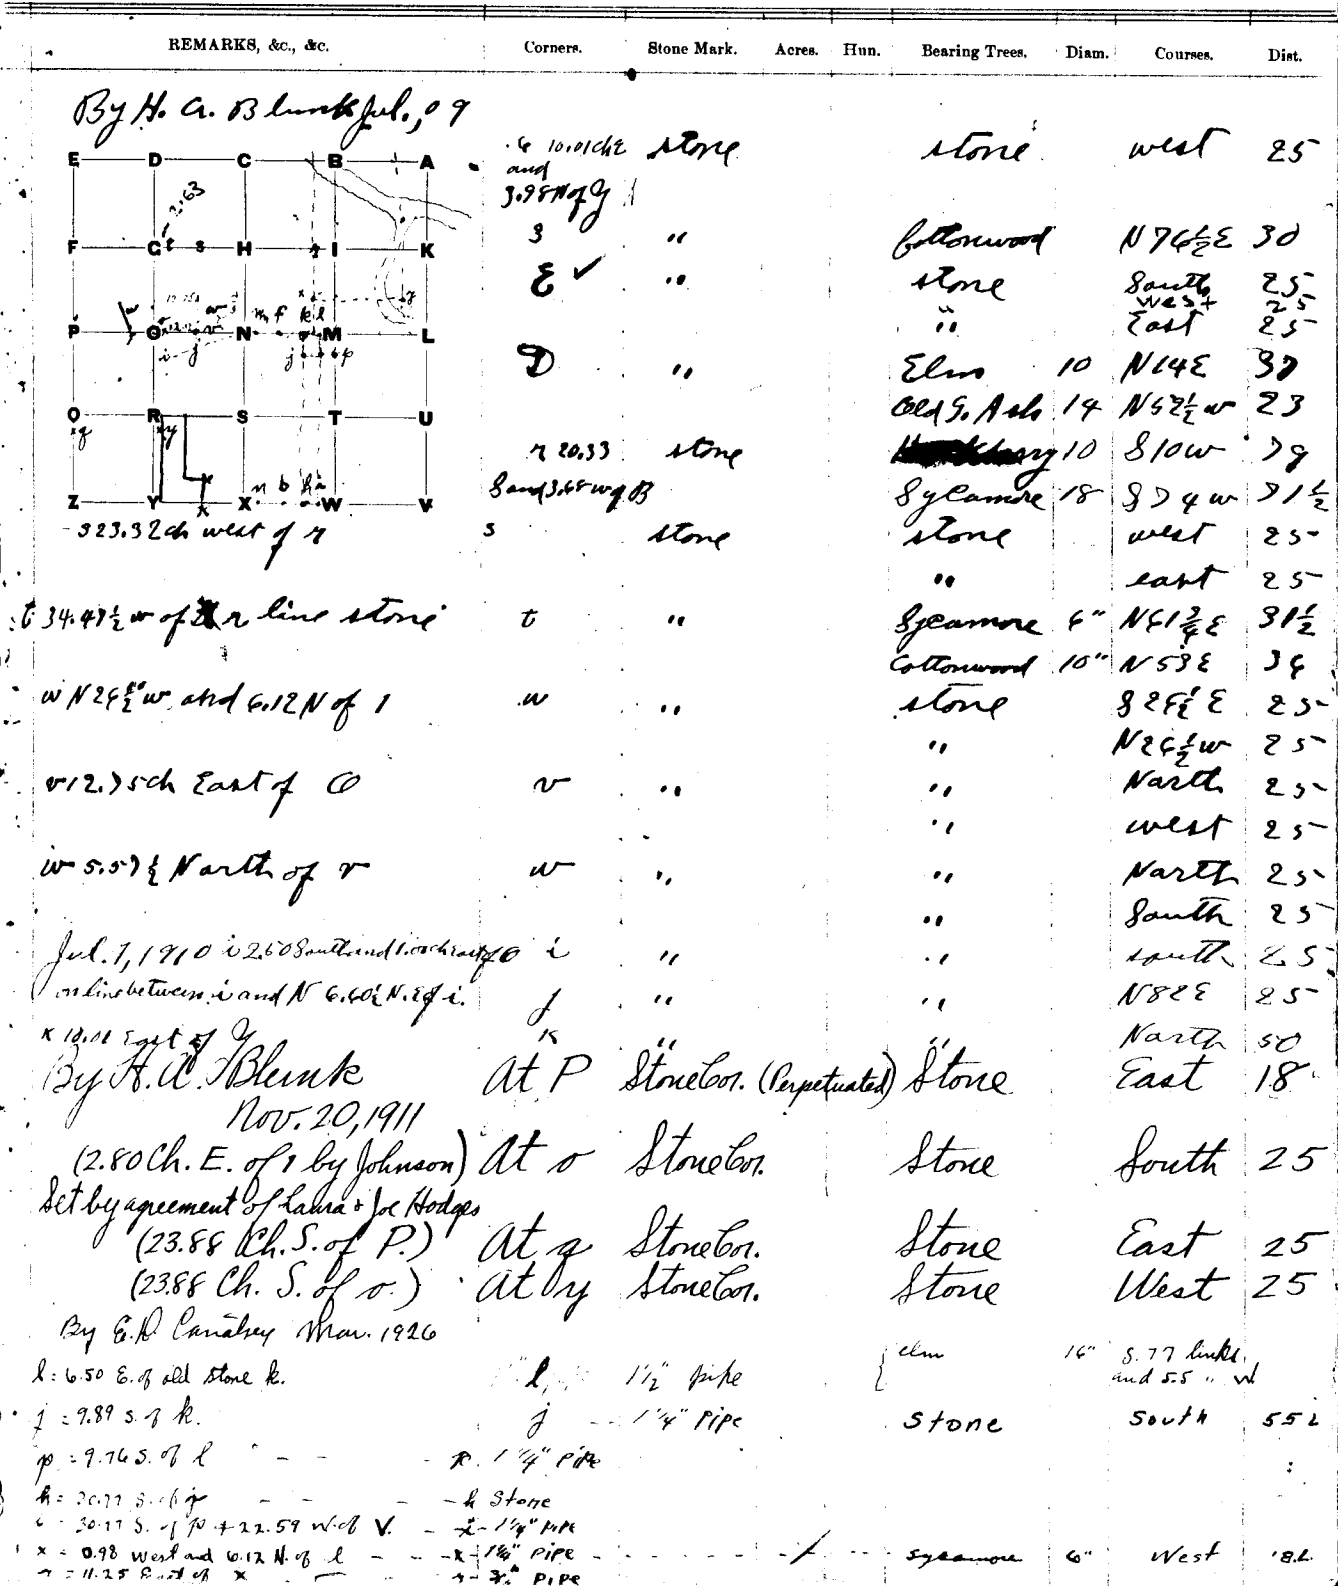 REMARKS, &c., &c. Corners. Stone Mark. Acres. Hun. Bearing Trees. Diam. Courses. Dist.
By H. A. Blunk Jul., 09
E D C B A
2.63
F G t s H I K
P O N M L
i j j p
Q R S T U
q y
Z Y X n b h W V
10.01ch E stone stone west 25
and
3.98 N of Y
3 " Cottonwood N 76½ E 30
E ✓ " stone South 25
West 25
" East 25
D " Elm 10 N14E 37
Old G. Ash 14 N52½ w 23
r 20.33 stone 10 S10w 79
S and 3.68 w of B Sycamore 18 S74w 71½
S 23.32ch west of r s stone stone west 25
" east 25
t 34.47½ w of r line stone t " Sycamore 6" N61¾E 31½
Cottonwood 10" N53E 36
w N26½w and 6.12 N of 1 w " stone S26½E 25
" N26½w 25
v 12.75ch East of O v " " North 25
" west 25
w 5.57½ North of v w " " North 25
" South 25
Jul. 7, 1910 i 2.60 South and East of O i " " south 25
on line between i and N 6.60½ N.E of i. j " " N82E 25
x 10.01 East of Y K " " North 50
By H. A. Blunk At P Stone Cor. (Perpetuated) Stone East 18
Nov. 20, 1911
(2.80 Ch. E. of 1 by Johnson) At o Stone Cor. Stone South 25
Set by agreement of Laura & Joe Hodges
(23.88 Ch. S. of P.) At q Stone Cor. Stone East 25
(23.88 Ch. S. of o.) At y Stone Cor. Stone West 25
By E.D. Mar. 1926
l: 6.50 E. of old stone k. l, 1½" pipe elm 16" S. 77 links,
and 5.5 " W
j = 9.89 S. of k. j 1¼" Pipe Stone South 55L
p = 9.76 S. of l p. 1¼" Pipe
h = 30.77 S. of j h Stone
30.77 S. of p + 22.59 W. of V. 1¼" Pipe
x = 0.98 West and 6.12 N. of l x 1¼" Pipe Sycamore 6" West 18L
= 11.25 East of x Pipe